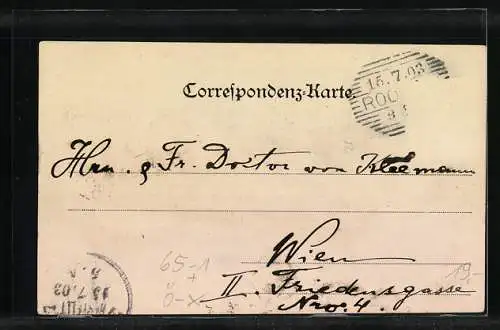 Correspondenz-Karte.
15.7.03
ROO
Hrn. & Fr. Doctor von Kleemann
Wien
II. Friedensgasse
Nro. 4.
65-1
+
Ö-X
19.-
15.7.03